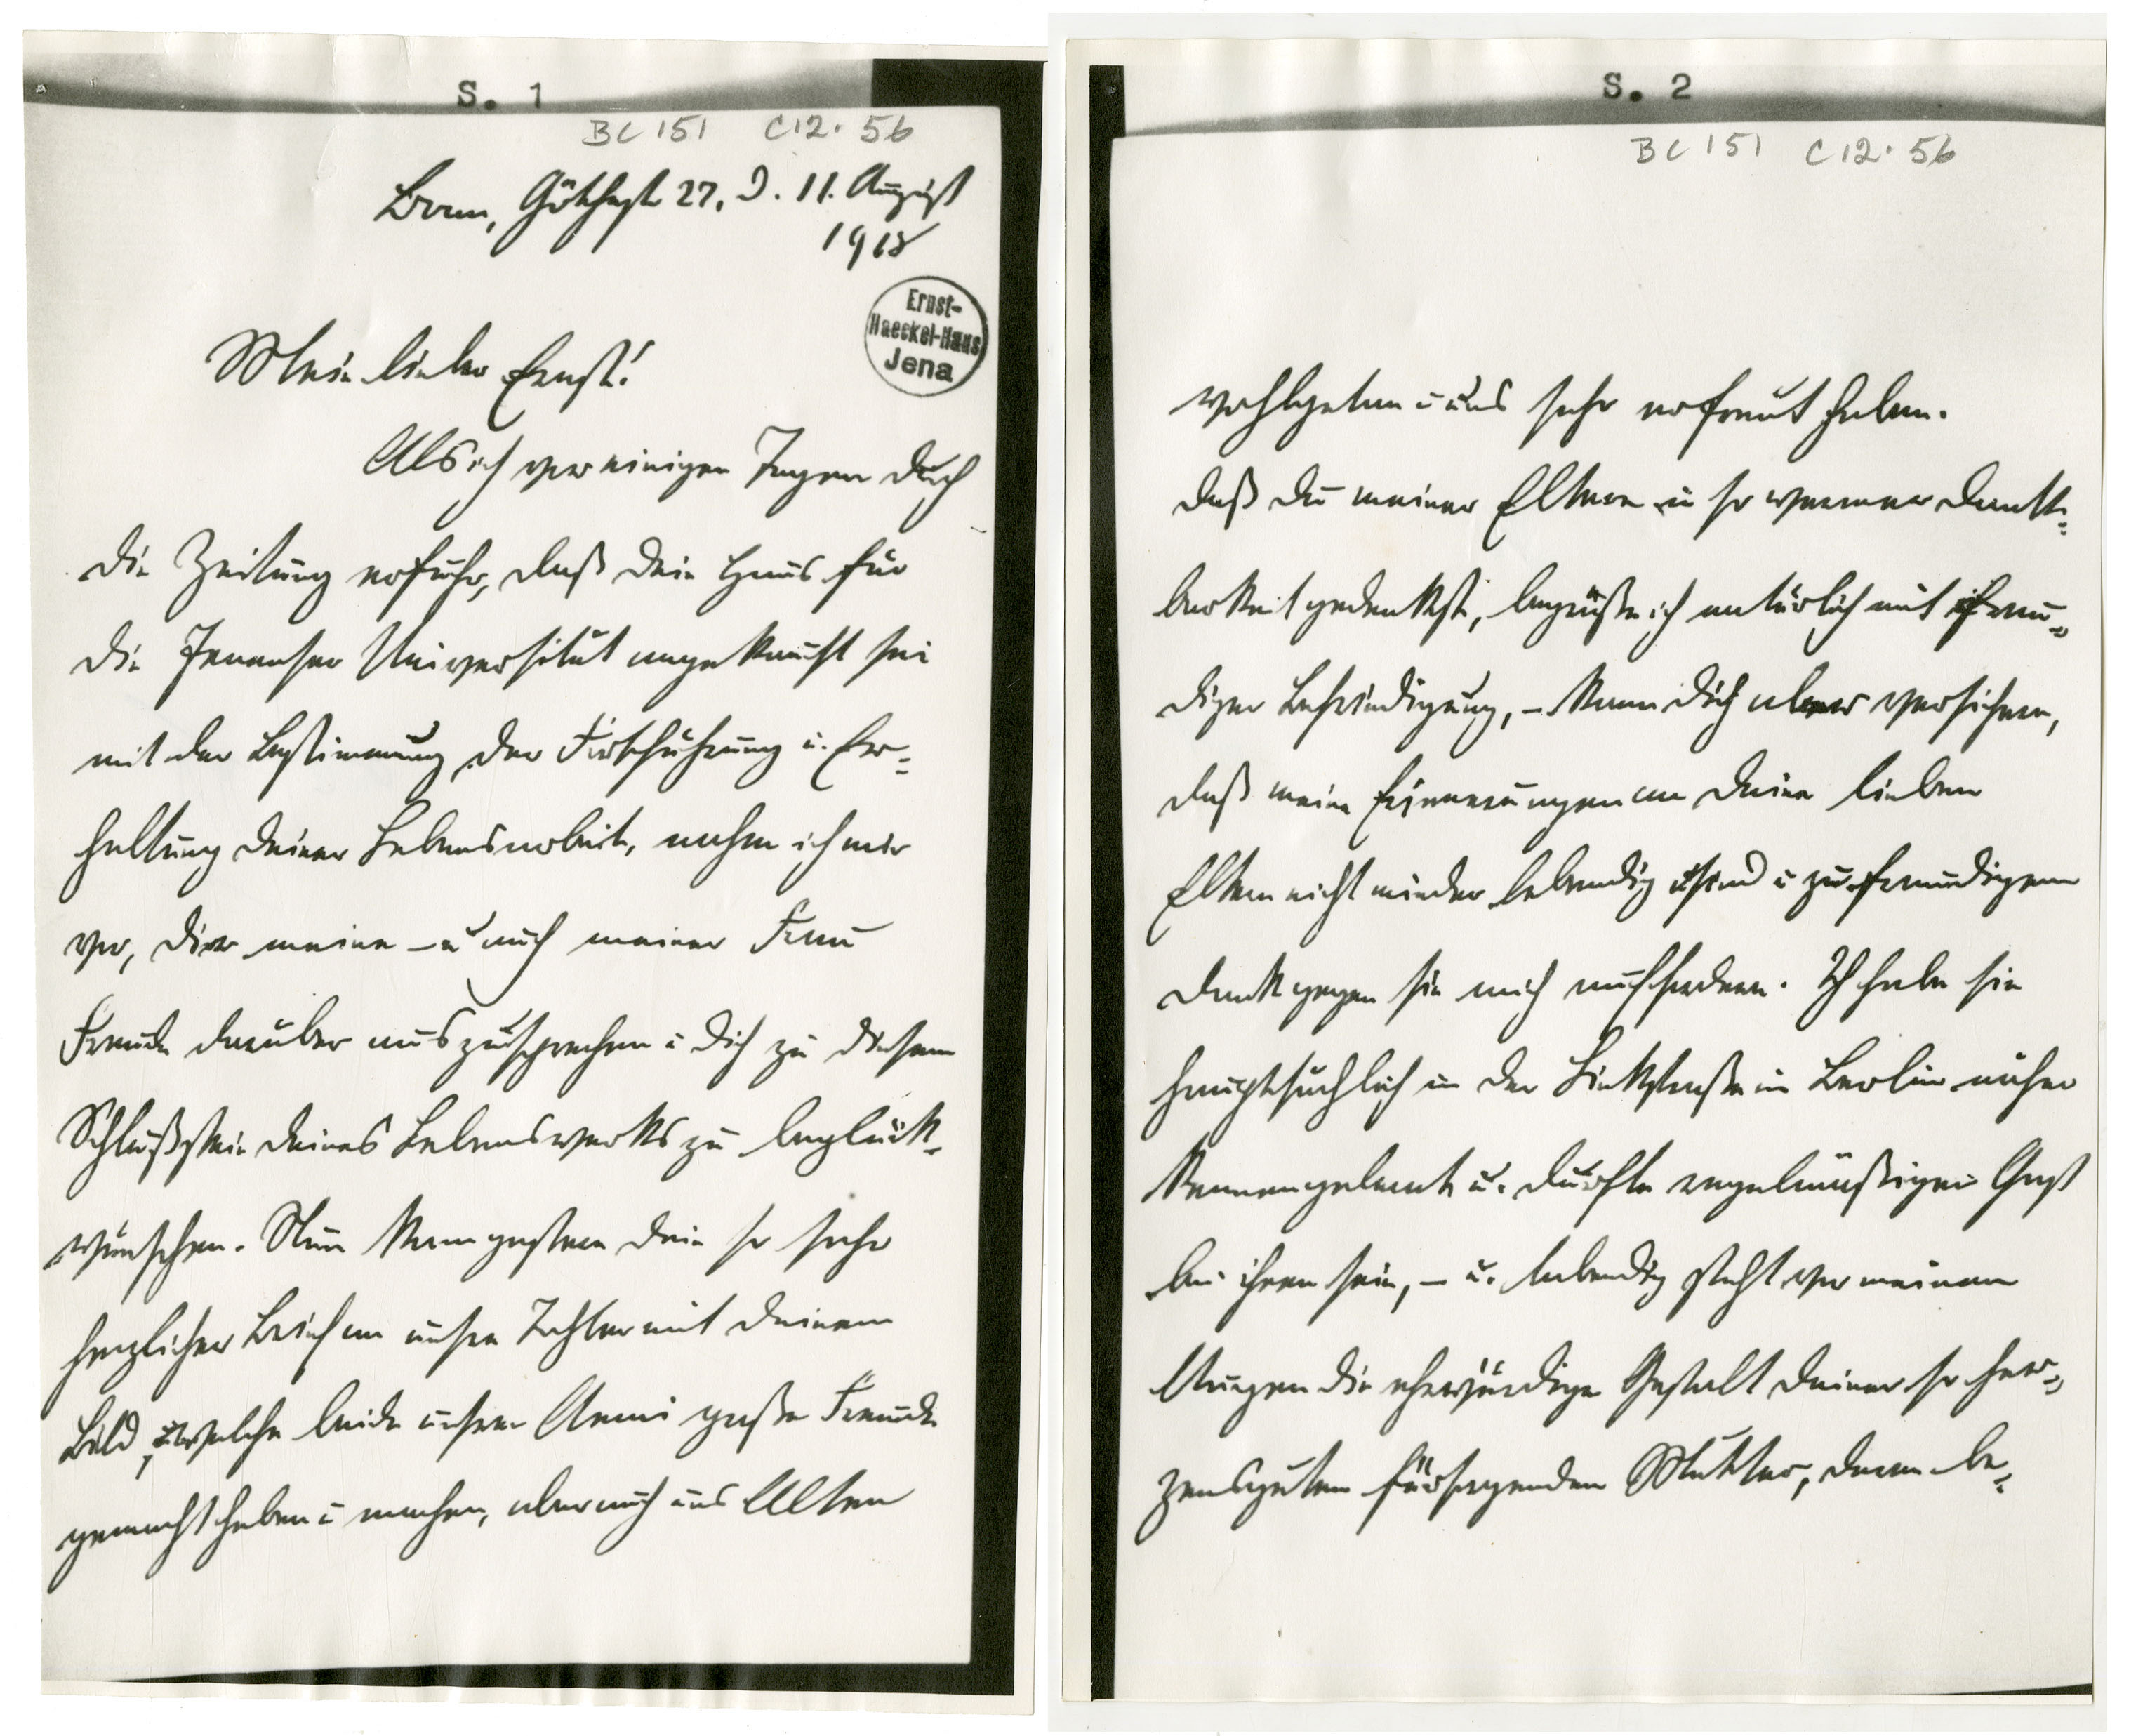 S. 1
BC 151 C12. 56
Bonn, Göthestr 27, D. 11. August
1918
Ernst-
Haeckel-Haus
Jena
Mein lieber Ernst!
Als ich vor einigen Tagen durch
die Zeitung erfuhr, daß Dein Haus für
die Jenenser Universität angekauft sei
mit der Bestimmung der Fortführung u. Er=
haltung Deiner Lebensarbeit, nahm ich mir
vor, Dir meine – u auch meiner Frau
Freude darüber auszusprechen u Dich zu diesem
Schlußstein Deines Lebenswerks zu beglück-
wünschen. Nun kam gestern Dein so sehr
herzlicher Brief an unsre Tochter mit Deinem
Bild, welche beide unserer Aenni große Freude
gemacht haben u machen, aber auch uns Alten
S. 2
BC 151 C12. 56
wohlgetan u uns sehr erfreut haben.
Daß Du meiner Eltern in so warmer Dank=
barkeit gedenkst, begrüße ich natürlich mit freu=
diger Befriedigung, – kann Dich aber versichern,
daß meine Erinnerungen an Deine lieben
Eltern nicht minder lebendig sind u zu freundigem
Dank gegen sie mich auffordern. Ich habe sie
hauptsächlich in der Linkstraße in Berlin näher
kennengelernt u. durfte regelmäßiger Gast
bei ihnen sein, – u. lebendig steht vor meinen
Augen die ehrwürdige Gestalt Deiner so her=
zensguten fürsorgenden Mutter, deren be=